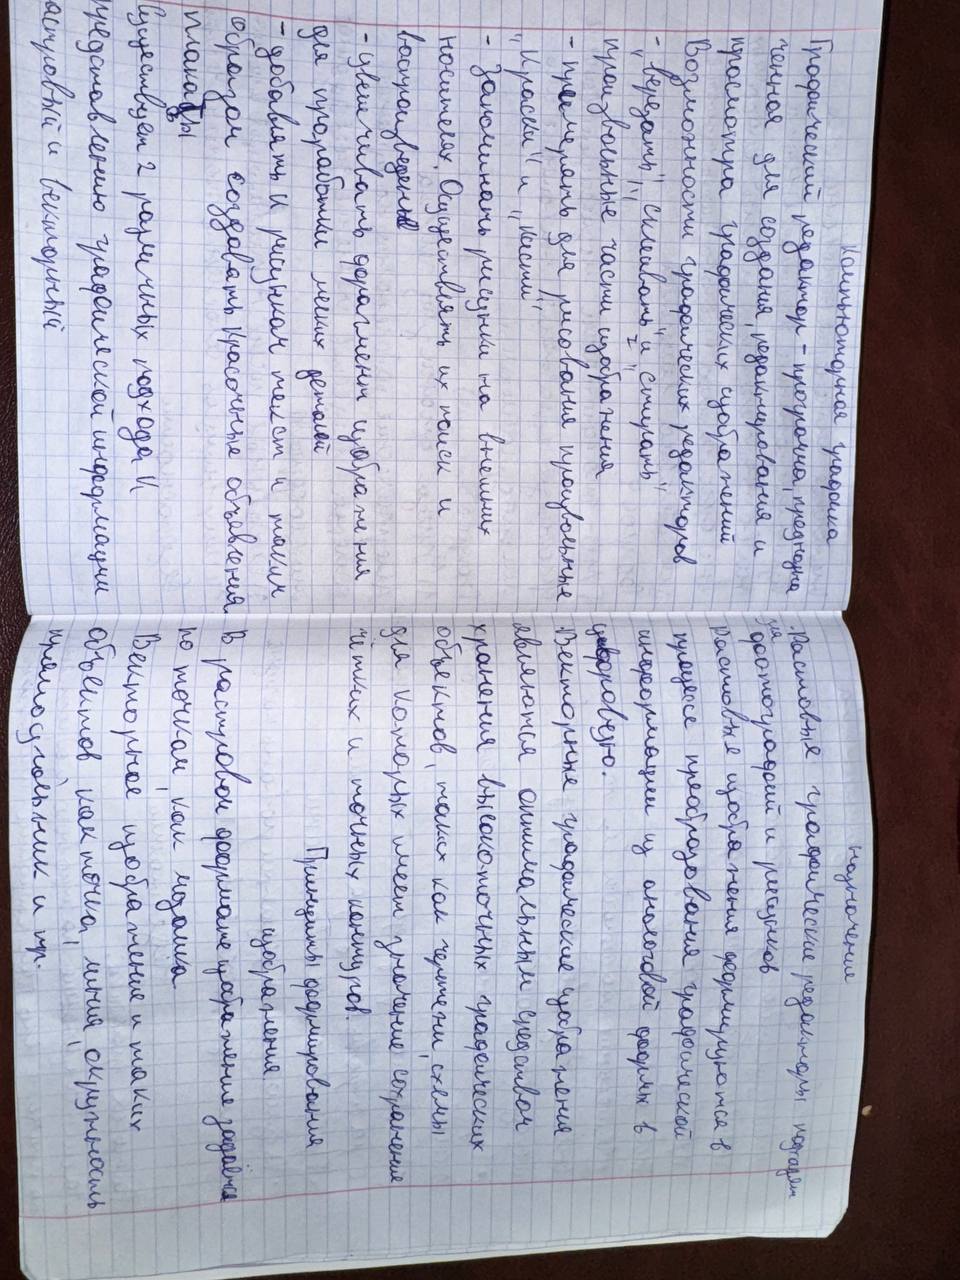 Компьютерная графика
Графический редактор - программа, предназна
ченная для создания, редактирования и
просмотра графических изображений
Возможности графических редакторов
- "вырезать", "склеивать" и "стирать"
произвольные части изображения
- применять для рисования произвольные
"краски" и "кисти"
- запоминать рисунки на внешних
носителях, осуществлять их поиск и
воспроизведение
- увеличивать фрагменты изображения
для проработки мелких деталей
- добавлять к рисункам текст и таким
образом создавать красочные объявления
плакаты
Существует 2 различных подхода к
представлению графической информации
астровый и векторный
назначении
Растовые графические редакторы
фотографий и рисунков
Растовые изображения формируются в
процессе преобразования графической
информации из аналоговой формы в
цифровую.
Векторные графические изображения
являются оптимальным средством
хранения высокоточных графических
объектов, таких как чертежи, схемы
для которых имеет значение сохранение
чётких и точных контуров.
Принципы формирования
изображения
В растровом формате изображение задаётся
по точкам, как мозаика
Векторное изображение и таких
объектов как точка, линия, окружность
прямоугольник и пр.